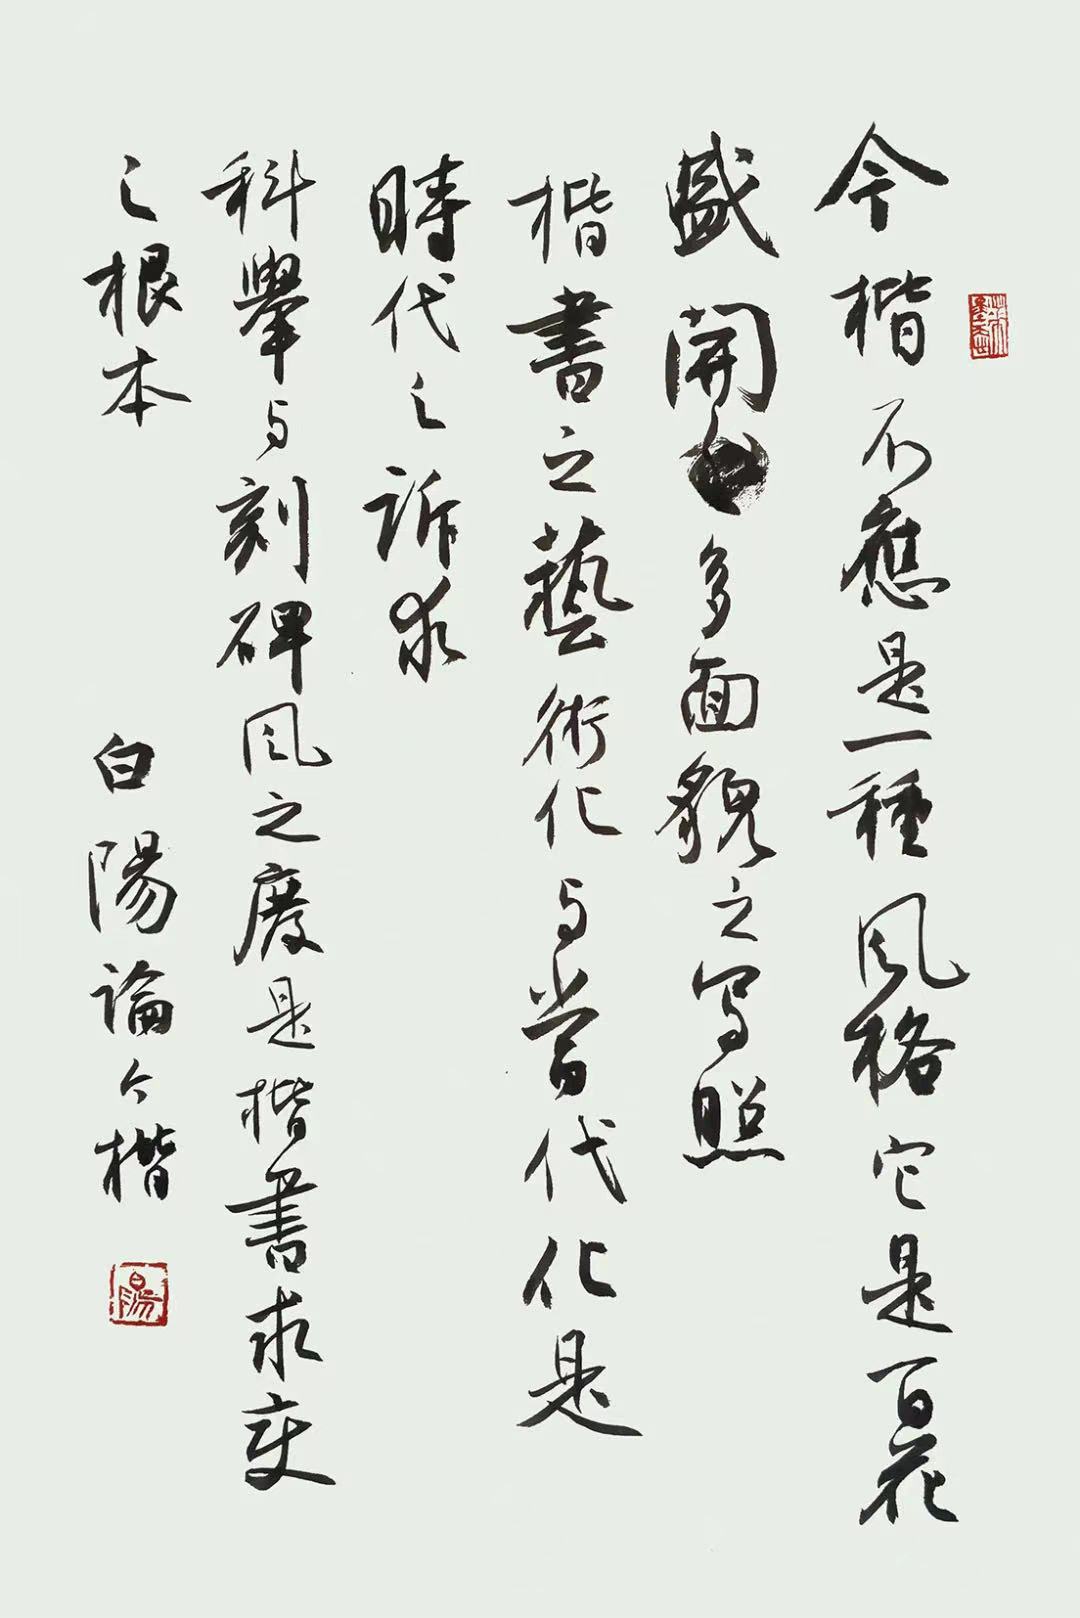 今楷不應是一種風格它是百花
盛開多面貌之写照
楷書之藝術化与當代化是
時代之訴求
科舉与刻碑風之廢是楷書求变
之根本
白陽論今楷